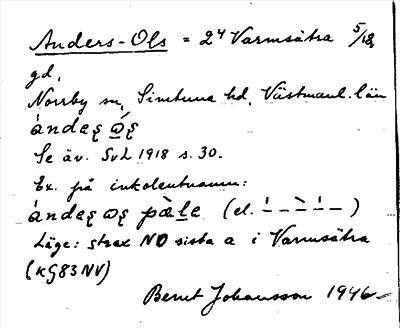 Anders-Ols = 2⁴ Varmsätra 5/18
gd,
Norrby sn, Simtuna hd, Västmanl. län
Se äv. SvL 1918 s. 30.
Ex. på inkolentnamn:
Läge: strax NO sista a i Varmsätra
(KG83NV)
Bernt Johansson 1946